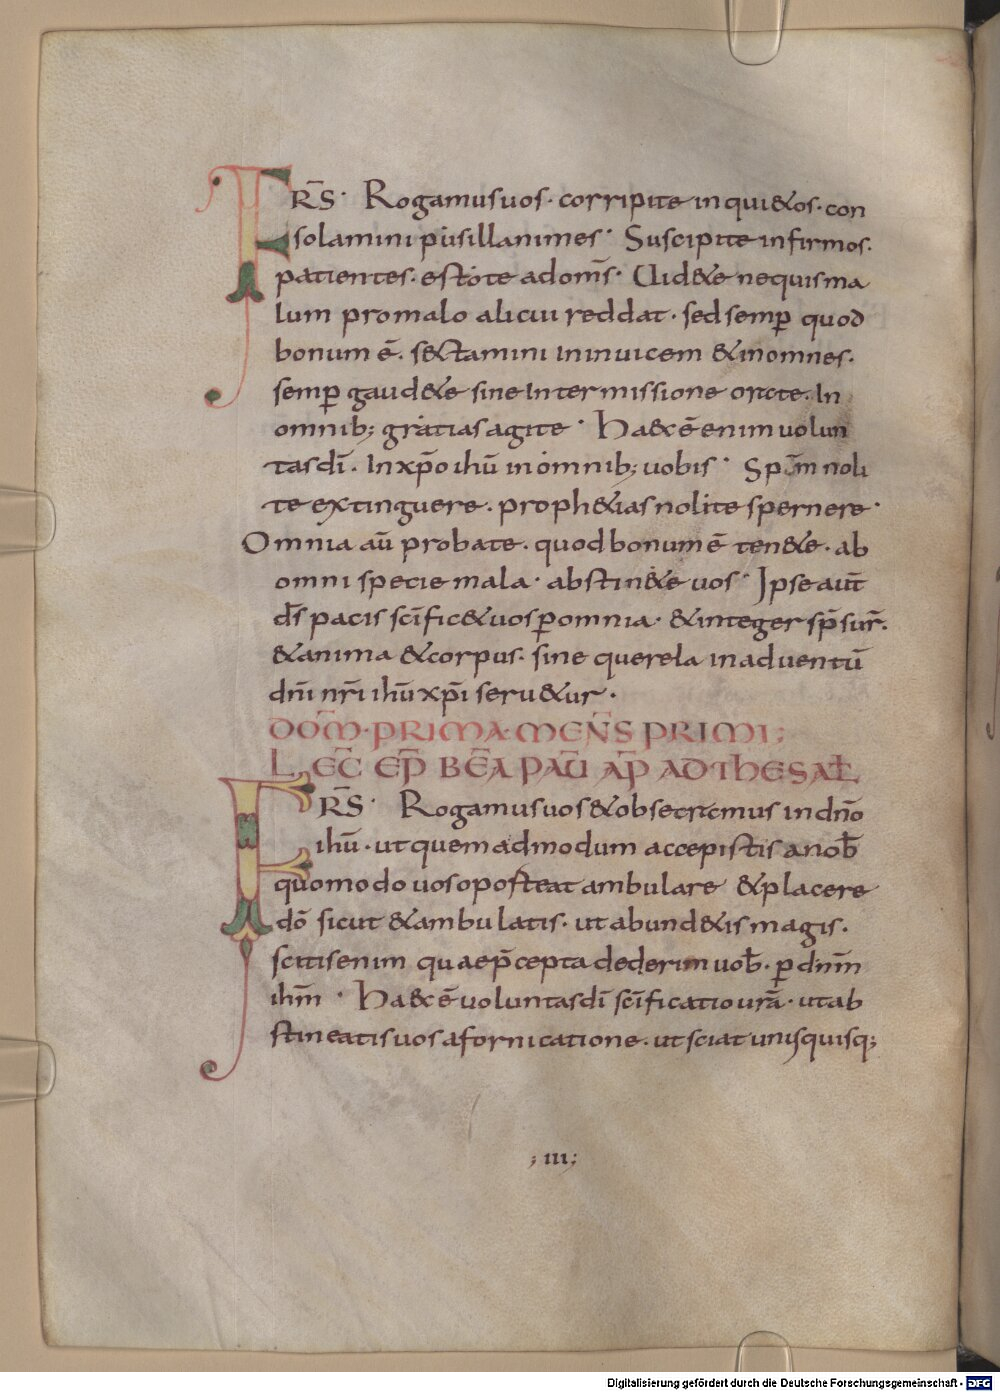 FRS̄· Rogamusuos· corripite inqui&os· con
solamini pusillanimes· Suscipite infirmos.
patientes· estote adom̄s· Uid&e nequisma
lum promalo alicui reddat· sedsemꝑ quod
bonum ē. sectamini ininuicem &inomnes.
semꝑ gaud&e sine Intermissione orate. In
omnib; gratiasagite· Haec ē enim uolun
tasdī. Inxp̄o ihū in omnib; uobis· Sp̄m noli
te extinguere. proph&ias nolite spernere·
Omnia aū probate. quodbonum ē ten&e· ab
omni specie mala· abstin&e uos· Ipse aut̄
ds̄ pacis sc̄ific&uos ꝑomnia· &integer sp̄s ur̄.
&anima &corpus. sine querela inaduentū
dn̄i nr̄i ihū xp̄i seru&ur·
DOM̄·PRIMA·MEN̄S PRIMI;
LEC̄ EP̄ BĒA PAŪ AP̄ ADTHESAL̄
FRS̄· Rogamusuos &obsecramus indn̄o
ihū· utquemadmodum accepistis anob̄
quomodo uosoporteat ambulare &placere
dō sicut &ambulatis· utabund&is magis·
scitisenim quaep̄cepta dederim uob̄· ꝑ dn̄m
ihm̄· Haec ē uoluntasdī sc̄ificatio urā· utab
stineatisuos afornicatione. utsciat unusquisq;
; III;
Digitalisierung gefördert durch die Deutsche Forschungsgemeinschaft - DFG